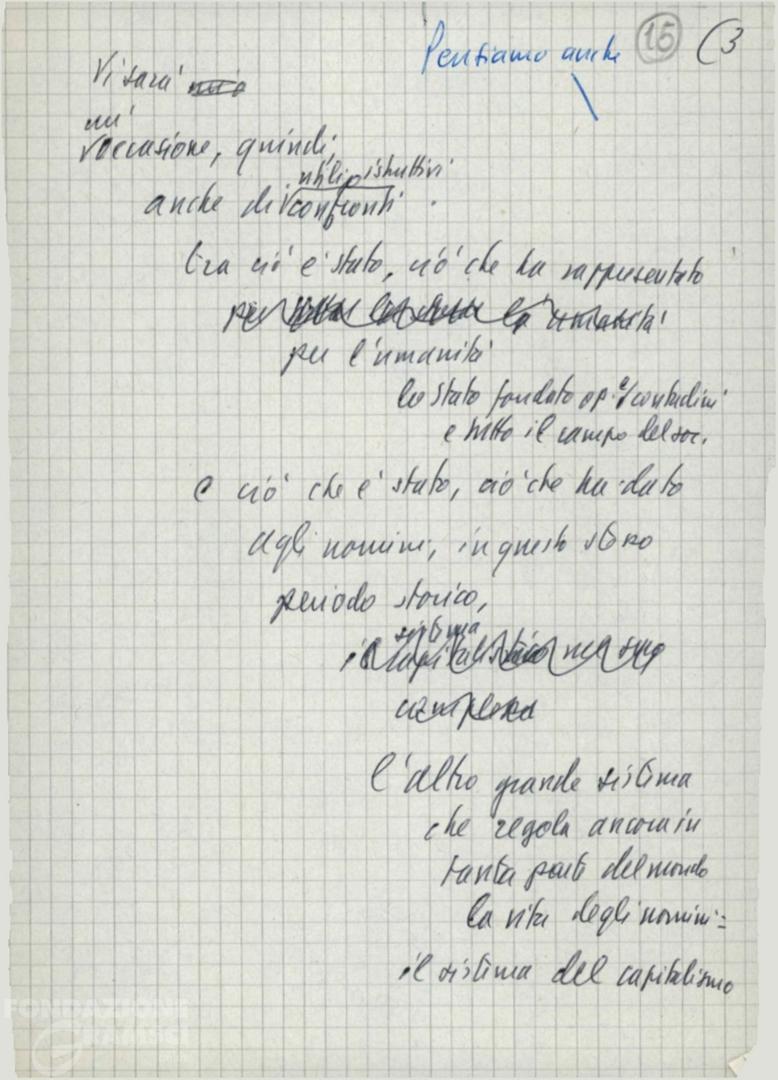 Pensiamo anche 15 (3
Vi sarà
un'
occasione, quindi,
utili, istruttivi
anche di confronti
tra ciò è stato, ciò che ha rappresentato
per umanità
per l'umanità
lo stato fondato op. e contadini
e tutto il campo del soc.
e ciò che è stato, ciò che ha dato
agli uomini, in questo stesso
periodo storico,
sistema
il capitalistico nel suo
complesso
l'altro grande sistema
che regola ancora in
tanta parte del mondo
la vita degli uomini:
il sistema del capitalismo
FONDAZIONE
GRAMSCI